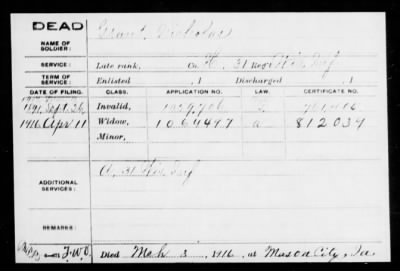 DEAD
NAME OF SOLDIER: Grant, Nicholas
SERVICE: Late rank, Co. H, 31 Reg't Wis. Inf
TERM OF SERVICE: Enlisted , 1 Discharged , 1
DATE OF FILING. CLASS. APPLICATION NO. LAW. CERTIFICATE NO.
1891 Sept. 26 Invalid,
1916 Apr 11 Widow, 1064497 a 812039
Minor,
ADDITIONAL SERVICES: A, 31 Wis. Inf
REMARKS:
Died Mch 3, 1916, at Mason City, Ia.